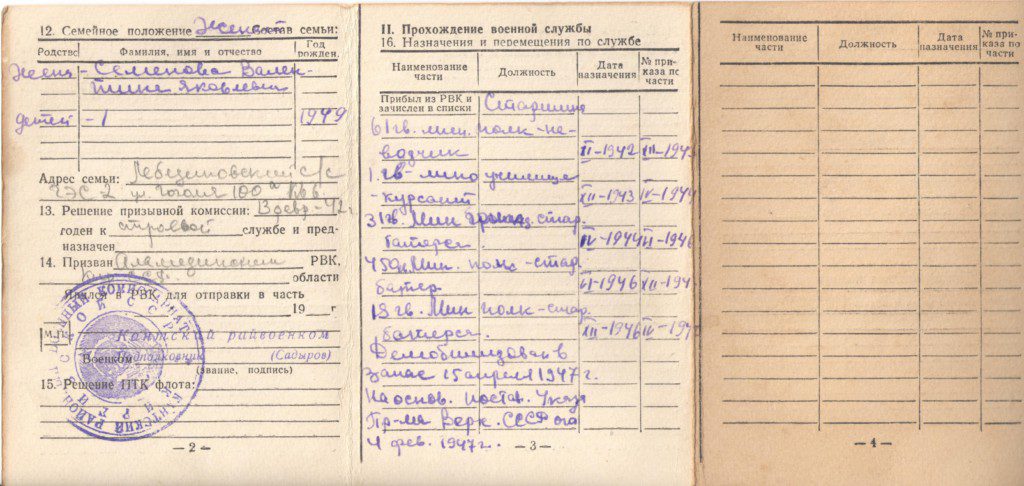 12. Семейное положение Женат состав семьи:
Родство Фамилия, имя и отчество Год рожден.
жена - Семенова Вален-
тина Яковлевна
детей - 1 1949
Адрес семьи: Лебединовский с/с
ГЭС 2 ул Гоголя 100а кв 6
13. Решение призывной комиссии: 3 февр-42 г.
годен к строевой службе и пред-
назначен
14. Призван РВК,
области
Явился в РВК для отправки в часть
19 г.
М.П.
Кантский райвоенком
Военком подполковник (Садыров)
(звание, подпись)
15. Решение ПТК флота:
— 2 —
II. Прохождение военной службы
16. Назначения и перемещения по службе
Наименование части Должность Дата назначения № при-каза по части
Прибыл из РВК и зачислен в списки
61 гв. мин. полк-на-
водчик II-1942 XII-1943
1 гв-мино училище
-курсант XII-1943 IV-1944
31 гв. Мин стар.
IV-1944 II-1946
Мин. полк-стар.
VI-1946 XII-1946
18 гв. Мин полк-стар.
XII-1946
Демобилизован в
запас 15 апреля 1947 г.
На основ. постав. Указа
Пр-ма Верх. СССР от
4 фев. 1947 г.
— 3 —
Наименование части Должность Дата назначения № при-каза по части
— 4 —